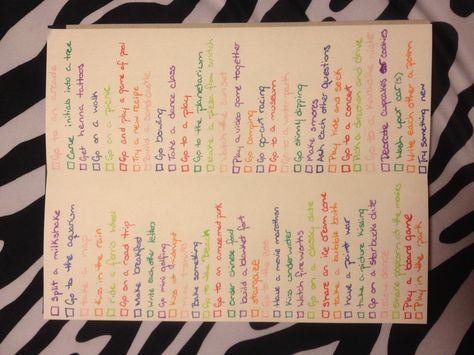 Split a milkshake
Go to the aquarium
Take a nap
Kiss in the rain
Ride a ferris wheel
Go on a road trip
Make breakfast
Write each other letters
Go mini golfing
Kiss at midnight
Bake something
Go to the beach
Go to an amusement park
Order chinese food
build a blanket fort
stargaze
Have a movie marathon
Kiss underwater
Watch fireworks
Go on a classy date
Share an ice cream cone
Take a bubble bath
have a paint war
Take a picture kissing
Go on a starbucks date
Slow dance
Share popcorn at the movies
Play a board game
Play in the park
Go to an arcade
Carve initials into a tree
Get henna tattoos
Go on a walk
Go on a picnic
Go and play a game of pool
Try a new recipe
Build a sandcastle
Go bowling
Take a dance class
Go to a play
Go to the planetarium
Make a pizza from scratch
Play a video game together
Go camping
Go go-cart racing
Go to a museum
Go to a water park
Go skinny dipping
Make smores
Ask each other questions
Play hide and seek
Go to a concert
Pick a direction and drive
Go to a
Decorate cupcakes or cookies
Wash your car(s)
Write each other a poem
Try something new